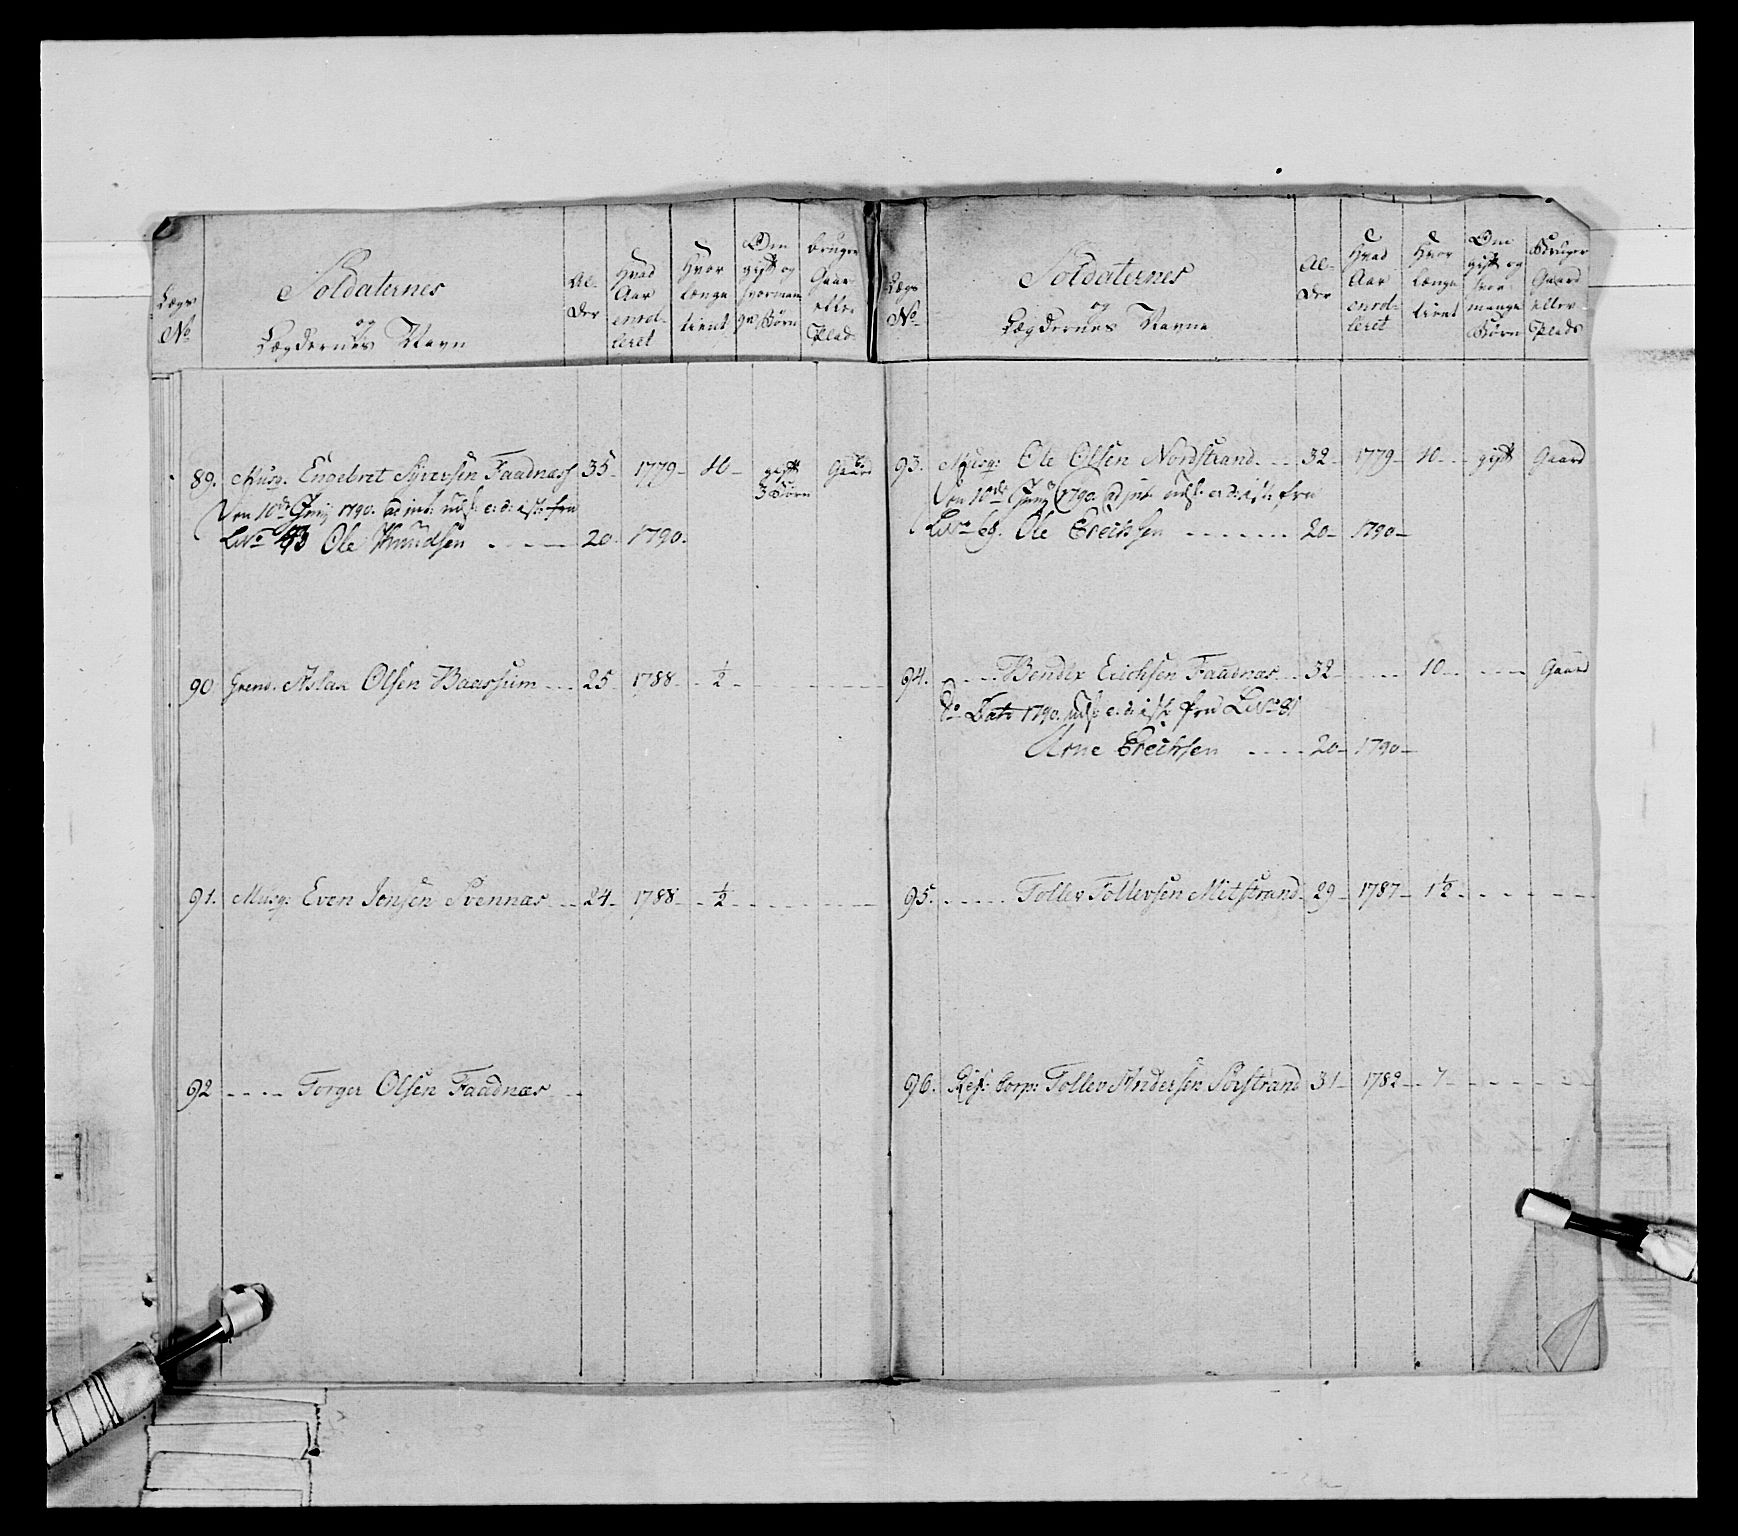 Lægs No
Soldaternes
og
Lægdernes Navn
Al-
der
Hvad
Aar
enrol-
leret
Hvor
længe
tient
Om
gift og
hvorman
ge Børn
bruger
Gaar
eller
Plads
89. Musq: Engebret Syversen Faadnæss 35 1779 10 gift Gaard
3 Børn
Den 10de Junij 1790
No Ole Knudsen 20 1790
90 Grend. Aslak Olsen Baassum 25 1788 ½
91. Musq: Even Jensen Svennæs 24 1788 ½
92 Torger Olsen Faadnæs
Lægs
No
Soldaternes
og
Lægdernes Navne
Al-
der
Hvad
Aar
enrol-
leret
Hvor
længe
tient
Om
gift og
hvor
mange
Børn
Bruger
Gaard
eller
Plads
93. Musq: Ole Olsen Nordstrand 32 1779 10 gift Gaard
Den 10de Junij 1790
No 69. Ole Erichsen 20 1790
94. Bendix Erichsen Faadnæs 32 10 Gaard
Do Dato 1790 No 81
Arne Erichsen 20 1790
95. Tollev Tollevsen Mitstrand 29 1787 1½
96. Ref: Corp: Tollev Andersen Sørstrand 31 1782 7